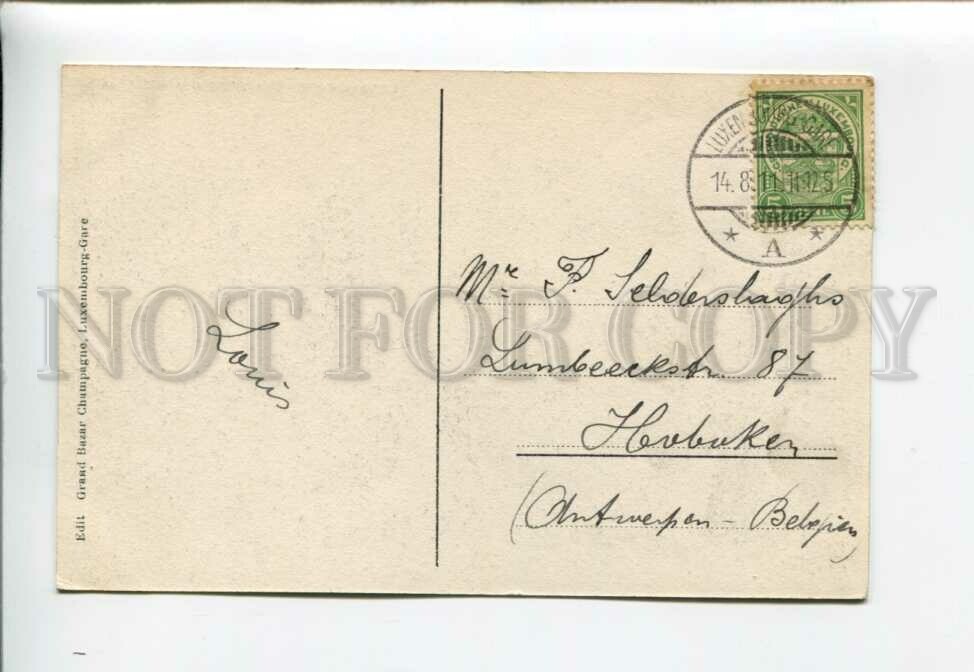 Edit. Grand Bazar Champagne, Luxembourg-Gare
Louis
14.8.11.11-12 S
* A *
5 5
Mr. F. Selderslaghs
Lumbeeckstr. 87
Hoboken
(Antwerpen - Belgien)
NOT FOR COPY